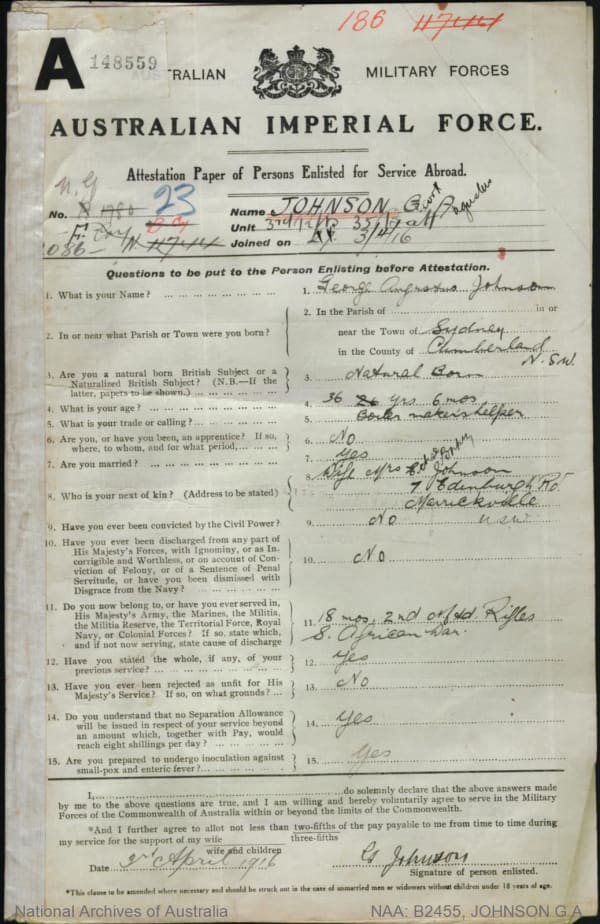 186
A 148559
AUSTRALIAN MILITARY FORCES
AUSTRALIAN IMPERIAL FORCE.
Attestation Paper of Persons Enlisted for Service Abroad.
N.G 23
No. Name JOHNSON George Augustus
Unit
Joined on 3/4/16
Questions to be put to the Person Enlisting before Attestation.
1. What is your Name? 1. George Augustus Johnson
2. In or near what Parish or Town were you born? 2. In the Parish of in or
near the Town of Sydney
in the County of Cumberland
N.S.W.
3. Are you a natural born British Subject or a
Naturalized British Subject? (N.B.—If the
latter, papers to be shown.) 3. Natural Born
4. What is your age? 4. 36 yrs 6 mos
5. What is your trade or calling? 5. Boiler makers helper
6. Are you, or have you been, an apprentice? If so,
where, to whom, and for what period. 6. No
7. Are you married? 7. Yes
8. Who is your next of kin? (Address to be stated) 8. Wife Mrs E. Johnson
7 Edinburgh Rd
Marrickville
N.S.W.
9. Have you ever been convicted by the Civil Power? 9. No
10. Have you ever been discharged from any part of
His Majesty's Forces, with Ignominy, or as In-
corrigible and Worthless, or on account of Con-
viction of Felony, or of a Sentence of Penal
Servitude, or have you been dismissed with
Disgrace from the Navy? 10. No
11. Do you now belong to, or have you ever served in,
His Majesty's Army, the Marines, the Militia,
the Militia Reserve, the Territorial Force, Royal
Navy, or Colonial Forces? If so, state which,
and if not now serving, state cause of discharge 11. 18 mos. 2nd Rifles
S. African War.
12. Have you stated the whole, if any, of your
previous service? 12. Yes
13. Have you ever been rejected as unfit for His
Majesty's Service? If so, on what grounds? 13. No
14. Do you understand that no Separation Allowance
will be issued in respect of your service beyond
an amount which, together with Pay, would
reach eight shillings per day? 14. Yes
15. Are you prepared to undergo inoculation against
small-pox and enteric fever? 15. Yes
I, do solemnly declare that the above answers made
by me to the above questions are true, and I am willing and hereby voluntarily agree to serve in the Military
Forces of the Commonwealth of Australia within or beyond the limits of the Commonwealth.
*And I further agree to allot not less than two-fifths of the pay payable to me from time to time during
three-fifths
my service for the support of my wife
wife and children
Date April 1916 G Johnson
Signature of person enlisted.
*This clause to be amended where necessary and should be struck out in the case of unmarried men or widowers without children under 18 years of age.
National Archives of Australia NAA: B2455, JOHNSON G A